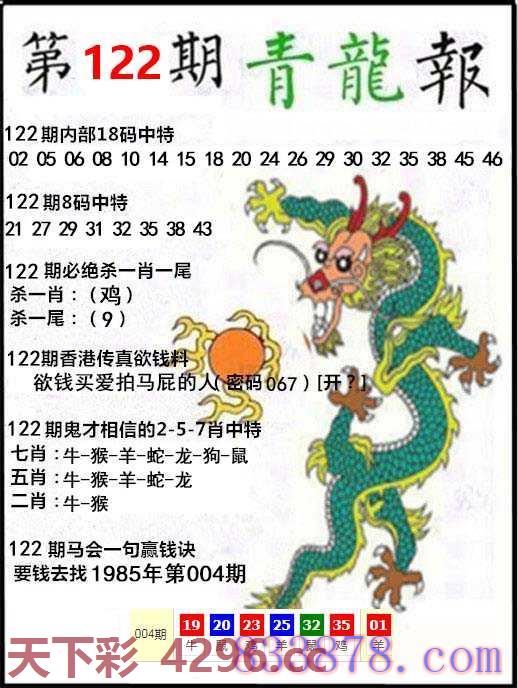 第122期 青龍報
122期内部18码中特
02 05 06 08 10 14 15 18 20 24 26 29 30 32 35 38 45 46
122期8码中特
21 27 29 31 32 35 38 43
122期必绝杀一肖一尾
杀一肖：（鸡）
杀一尾：（9）
122期香港传真欲钱料
欲钱买爱拍马屁的人（密码067）[开？]
122期鬼才相信的2-5-7肖中特
七肖：牛-猴-羊-蛇-龙-狗-鼠
五肖：牛-猴-羊-蛇-龙
二肖：牛-猴
122期马会一句赢钱诀
要钱去找1985年第004期
004期 19 20 23 25 32 35 01
牛 鼠 鸡 羊 鼠 鸡 羊
天下彩 4296.cc